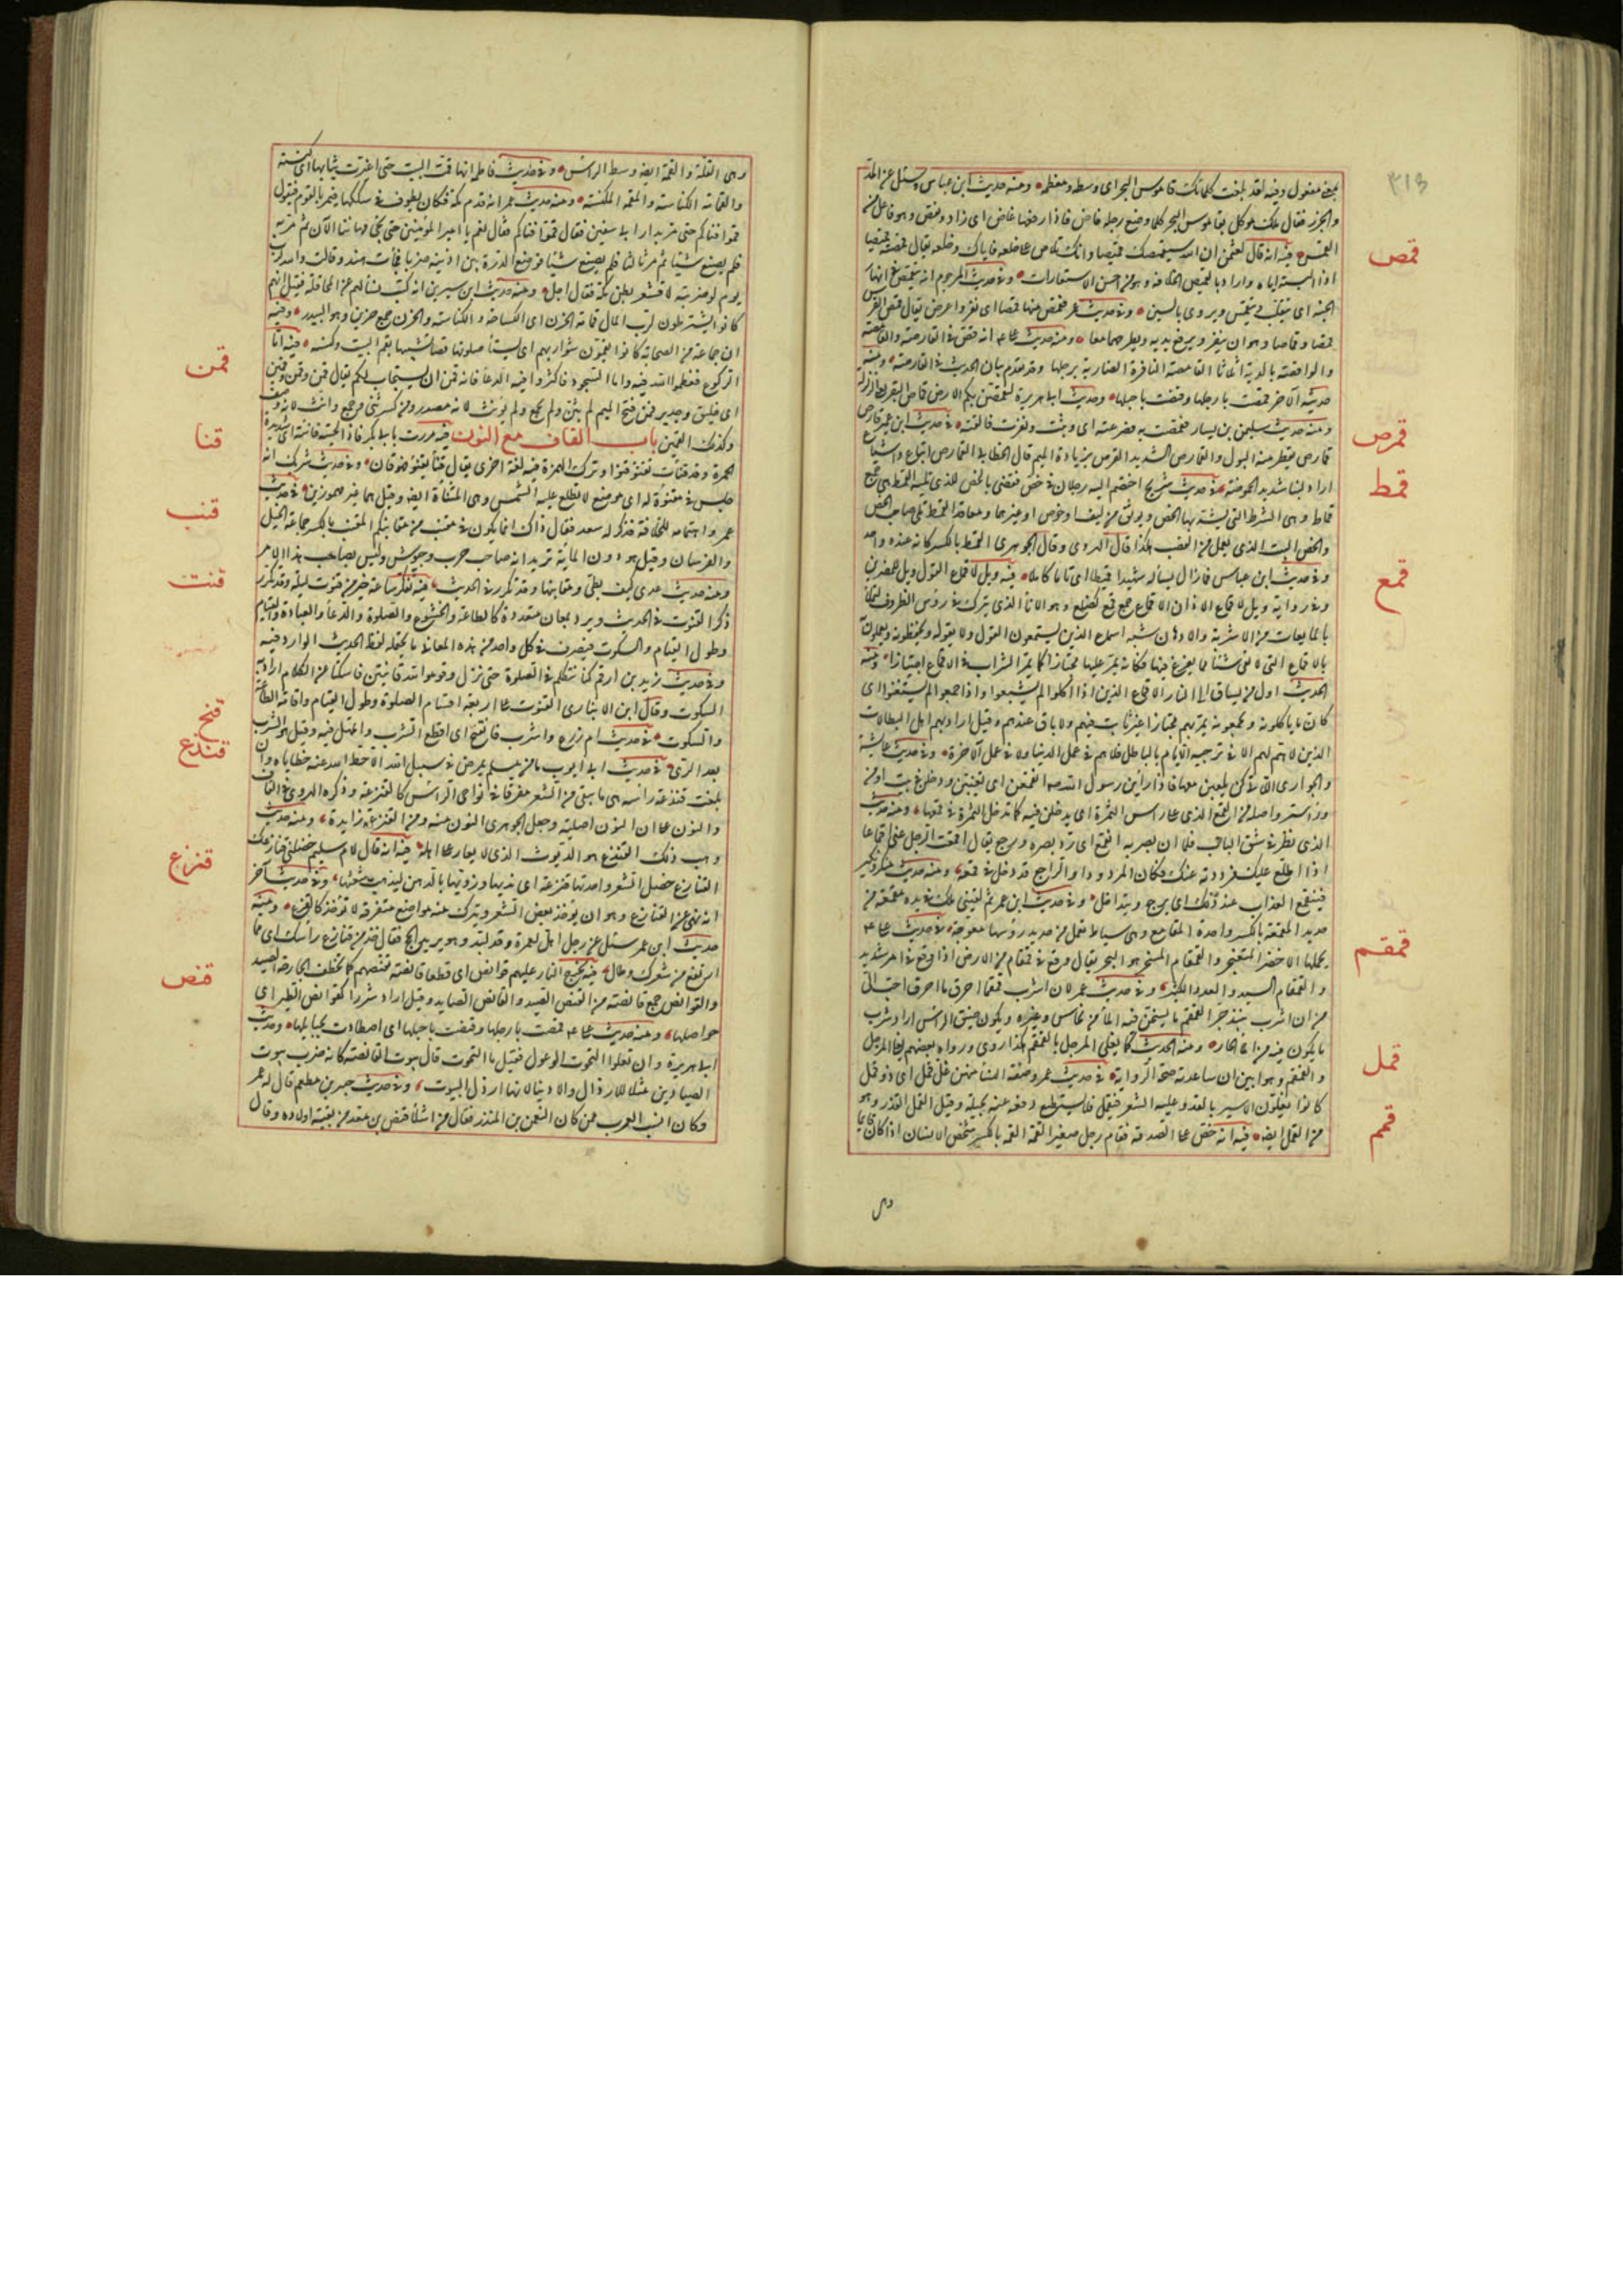 ٣١٣
بمعنى مفعول وفيه لقد بلغت كلماتك قاموس البحر اى وسطه ومعظمه ومنه حديث ابن عباس وسئل عن المد
والجزر فقال ملك موكل بقاموس البحر كلما وضع رجله فاض فاذا رفعها غاض اى زاد ونقص وهو فاعول من
القمس فيه انه قال لعثمن ان الله سيقمصك قميصا وانك تلاص على خلعه فاياك وخلعه يقال قمصته قميصا
قمص
اذا البسته اياه واراد بالقميص الخلافة وهو من احسن الاستعارات وفى حديث المرجوم انه يتقمص فى انهار
الجنة اى يتقلب وينغمس ويروى بالسين وفى حديث عمر فقمص منها قمصا اى نفر واعرض يقال قمص الفرس
قمصا وقماصا وهو ان ينفر ويرفع يديه ويطرحهما معا ومنه حديث على انه قضى فى القارصة والقامصة
والواقصة بالدية اثلاثا القامصة النافرة الضاربة برجلها وقد تقدم بيان الحديث فى القارصة ومنه
حديثه الآخر قمصت بارجلها وقنصت باحبلها وحديث ابى هريرة لتقمصن بكم الارض قماص البقر يعنى الزلزلة
ومنه حديث سليمن بن يسار فقمصت به فصرعته اى وثبت ونفرت فالقته فى حديث ابن عمير قارص
قمرص
قمارص يقطر منه البول والقمارص الشديد القرص بزيادة الميم قال الخطابى القمارص اتباع واشباع
اراد لبنا شديد الحموضة فى حديث شريح اختصم اليه رجلان فى خص فقضى بالخص للذى تليه القمط هى جمع
قمط
قماط وهى الشرط التى يشد بها الخص ويوثق من ليف او خوص او غيرهما ومعاقد القمط تلى صاحب الخص
والخص البيت الذى يعمل من القصب هكذا قال الهروى وقال الجوهرى القمط بالكسر كانه عنده واحد
وفى حديث ابن عباس فما زال يسأله شهرا قميطا اى تاما كاملا فيه ويل لاقماع القول ويل للمصرين
قمع
وفى رواية ويل لاقماع الآذان الاقماع جمع قمع كضلع وهو الاناء الذى يترك فى رؤس الظروف لتملأ
بالمايعات من الاشربة والادهان شبه اسماع الذين يستمعون القول ولا يعونه ويحفظونه ويعملون
بالاقماع التى لا تعى شيئا مما يفرغ فيها فكانه يمر عليها مجتازا كما يمر الشراب فى الاقماع اجتيازا ومنه
الحديث اول من يساق الى النار الاقماع الذين اذا اكلوا لم يشبعوا واذا جمعوا لم يستغنوا اى
كان ما ياكلونه ويجمعونه يمر بهم مجتازا غير ثابت فيهم ولا باق عندهم وقيل اراد بهم اهل البطالات
الذين لا هم لهم الا فى ترجية الايام بالباطل فلا هم فى عمل الدنيا ولا فى عمل الآخرة وفى حديث عايشة
والجوارى اللاتى كن يلعبن معها فاذا رأين رسول الله انقمعن اى تغيبن ودخلن فى بيت او من
وراء ستر واصله من القمع الذى على رأس الثمرة اى يدخلن فيه كما تدخل الثمرة فى قمعها ومنه حديث
الذى نظر فى شق الباب فلما ان بصر به انقمع اى رد بصره ورجع يقال اقمعت الرجل عنى اقماعا
اذا اطلع عليك فرددته عنك فكان المردود او الراجع قد دخل فى قمعه ومنه حديث منكر ونكير
فينقمع العذاب عند ذلك اى يرجع ويتداخل وفى حديث ابن عمر ثم لقينى ملك فى يده مقمعة من
حديد المقمعة بالكسر واحدة المقامع وهى سياط تعمل من حديد رؤسها معوجة فى حديث على
قمقم
يحملها الاخضر المثعنجر والقمقام المسخر هو البحر يقال وقع فى قمقام من الارض اذا وقع فى امر شديد
والقمقام السيد والعدد الكثير وفى حديث عمر لان اشرب قمقما احرق ما احرق احب الى
من ان اشرب نبيذ جر القمقم ما يسخن فيه الماء من نحاس وغيره ويكون ضيق الراس اراد شرب
ما يكون فيه من الماء الحار ومنه الحديث كما يغلى المرجل بالقمقم هكذا روى ورواه بعضهم كما يغلى المرجل
والقمقم وهو ابين ان ساعدته صحة الرواية فى حديث عمر وصفة النساء منهن غل قمل اى ذو قمل
قمل
كانوا يغلون الاسير بالقد وعليه الشعر فيقمل فلا يستطيع دفعه عنه بحيلة وقيل القمل القذر وهو
من القمل ايضا فيه انه حض على الصدقة فقام رجل صغير القمة القمة بالكسر شخص الانسان اذا كان قايما
قمم
وهى
وهى القامة والقمة ايضا وسط الراس وفى حديث فاطمة انها قمت البيت حتى اغبرت ثيابها اى كنسته
والقمامة الكناسة والمقمة المكنسة ومنه حديث عمر انه قدم مكة فكان يطوف فى سككها فيمر بالقوم فيقول
قموا فناءكم حتى مر بدار ابى سفين فقال قموا فناءكم فقال نعم يا امير المؤمنين حتى يجئ مهاننا الآن ثم مر به
فلم يصنع شيئا ثم مر ثالثا فلم يصنع شيئا فوضع الدرة بين اذنيه ضربا فجاءت هند وقالت والله لرب
يوم لو ضربته لاقشعر بطن مكة فقال اجل ومنه حديث ابن سيرين انه كتب يسألهم عن المحاقلة فقيل انهم
كانوا يشترطون لرب المال قمامة الجرن اى الكساحة والكناسة والجرن جمع جرين وهو البيدر ومنه
ان جماعة من الصحابة كانوا يقمون شواربهم اى يستأصلونها قصا تشبيها بقم البيت وكنسه فيه اما
قمن
الركوع فعظموا الله فيه واما السجود فاكثروا فيه الدعاء فانه قمن ان يستجاب لكم يقال قمن وقمن وقمين
اى خليق وجدير فمن فتح الميم لم يثن ولم يجمع ولم يؤنث لانه مصدر ومن كسر ثنى وجمع وانث لانه وصف
وكذلك القمين باب القاف مع النون فيه مررت بابى بكر فاذا لحيته قانئة اى شديدة
قنا
الحمرة وقد قنأت تقنؤ قنوا وترك الهمزة فيه لغة اخرى يقال قنا يقنو فهو قان وفى حديث شريك انه
جلس فى مقنؤة له اى موضع لا تطلع عليه الشمس وهى المقنأة ايضا وقيل هما غير مهموزين فى حديث
قنب
عمر واهتمامه للخلافة فذكر له سعد فقال ذاك انما يكون فى مقنب من مقانبكم المقنب بالكسر جماعة الخيل
والفرسان وقيل هو دون الماية يريد انه صاحب حرب وجيوش وليس بصاحب هذا الامر
ومنه حديث عدى كيف بطئ ومقانبها وقد تكرر فى الحديث فيه تفكر ساعة خير من قنوت ليلة وقد تكرر
قنت
ذكر القنوت فى الحديث ويرد بمعان متعددة كالطاعة والخشوع والصلوة والدعاء والعبادة والقيام
وطول القيام والسكوت فيصرف فى كل واحد من هذه المعانى ما يحتمله لفظ الحديث الوارد فيه
وفى حديث زيد بن ارقم كنا نتكلم فى الصلوة حتى نزل وقوموا لله قانتين فامسكنا عن الكلام اراد به
السكوت وقال ابن الانبارى القنوت على اربعة اقسام الصلوة وطول القيام واقامة الطاعة
والسكوت فى حديث ام زرع واشرب فاتقنح اى اقطع الشرب واتمهل فيه وقيل هو الشرب
قنح
بعد الرى فى حديث ابى ايوب ما من مسلم يمرض فى سبيل الله الا حط الله عنه خطاياه وان
قنذع
بلغت قنذعة رأسه هى ما يبقى من الشعر مفرقا فى نواحى الراس كالقنزعة وذكره الهروى فى القاف
والنون على ان النون اصلية وجعل الجوهرى النون منه ومن القنزعة زايدة ومنه حديث
وهب ذلك القنذع هو الديوث الذى لا يغار على اهله فيه انه قال لام سليم خضلى قنازعك
قنزع
القنازع خصل الشعر واحدتها قنزعة اى نديها ورويها بالدهن ليذهب شعثها وفى حديث آخر
انه نهى عن القنازع وهو ان يؤخذ بعض الشعر ويترك منه مواضع متفرقة لا تؤخذ كالقزع ومنه
حديث ابن عمر سئل عن رجل اهل بعمرة وقد لبد وهو يريد الحج فقال خذ من قنازع رأسك اى مما
ارتفع من شعرك وطال فيه تخرج النار عليهم قوانص اى قطعا قانصة تقنصهم كما تختطف الجارحة الصيد
قنص
والقوانص جمع قانصة من القنص الصيد والقانص الصايد وقيل اراد شررا كقوانص الطير اى
حواصلها ومنه حديث على قمصت بارجلها وقنصت باحبلها اى اصطادت بحبايلها وحديث
ابى هريرة وان تعلو التحوت الوعول فقيل ما التحوت قال بيوت القانصة كانه ضرب بيوت
الصيادين مثلا للاراذل والادنياء لانها ارذل البيوت وفى حديث جبير بن مطعم قال له عمر
وكان انسب العرب ممن كان النعمن بن المنذر فقال من اشلاء قنص بن معد من بقية اولاده وقال